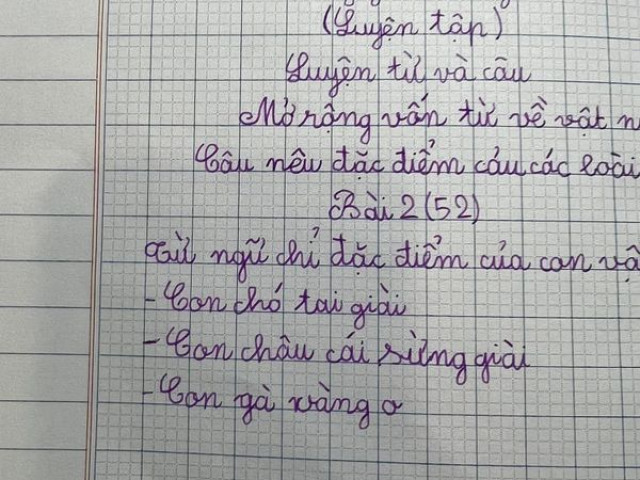 (Luyện tập)
Luyện từ và câu
Mở rộng vấn từ về vật n
Câu nêu đặc điểm cảu các loài
Bài 2 (52)
Từ ngữ chỉ đặc điểm của con vậ
- Con chó tai giài
- Con châu cái sừng giài
- Con gà vàng o